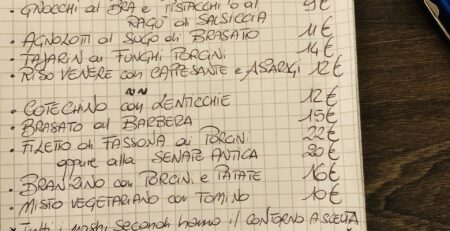 • GNOCCHI al BRA e PISTACCHI o al 9€
RAGÙ di SALSICCIA
• AGNOLOTTI al SUGO di BRASATO 11€
• TAJARIN ai FUNGHI PORCINI 14€
• RISO VENERE con CAPPESANTE e ASPARAGI 12€
• COTECHINO con LENTICCHIE 12€
• BRASATO al BARBERA 15€
• FILETTO di FASSONA ai PORCINI 22€
oppure alla SENAPE ANTICA 20€
• BRANZINO con PORCINI e PATATE 16€
• MISTO VEGETARIANO con TOMINO 10€
Tutti i nostri secondi hanno il CONTORNO A SCELTA